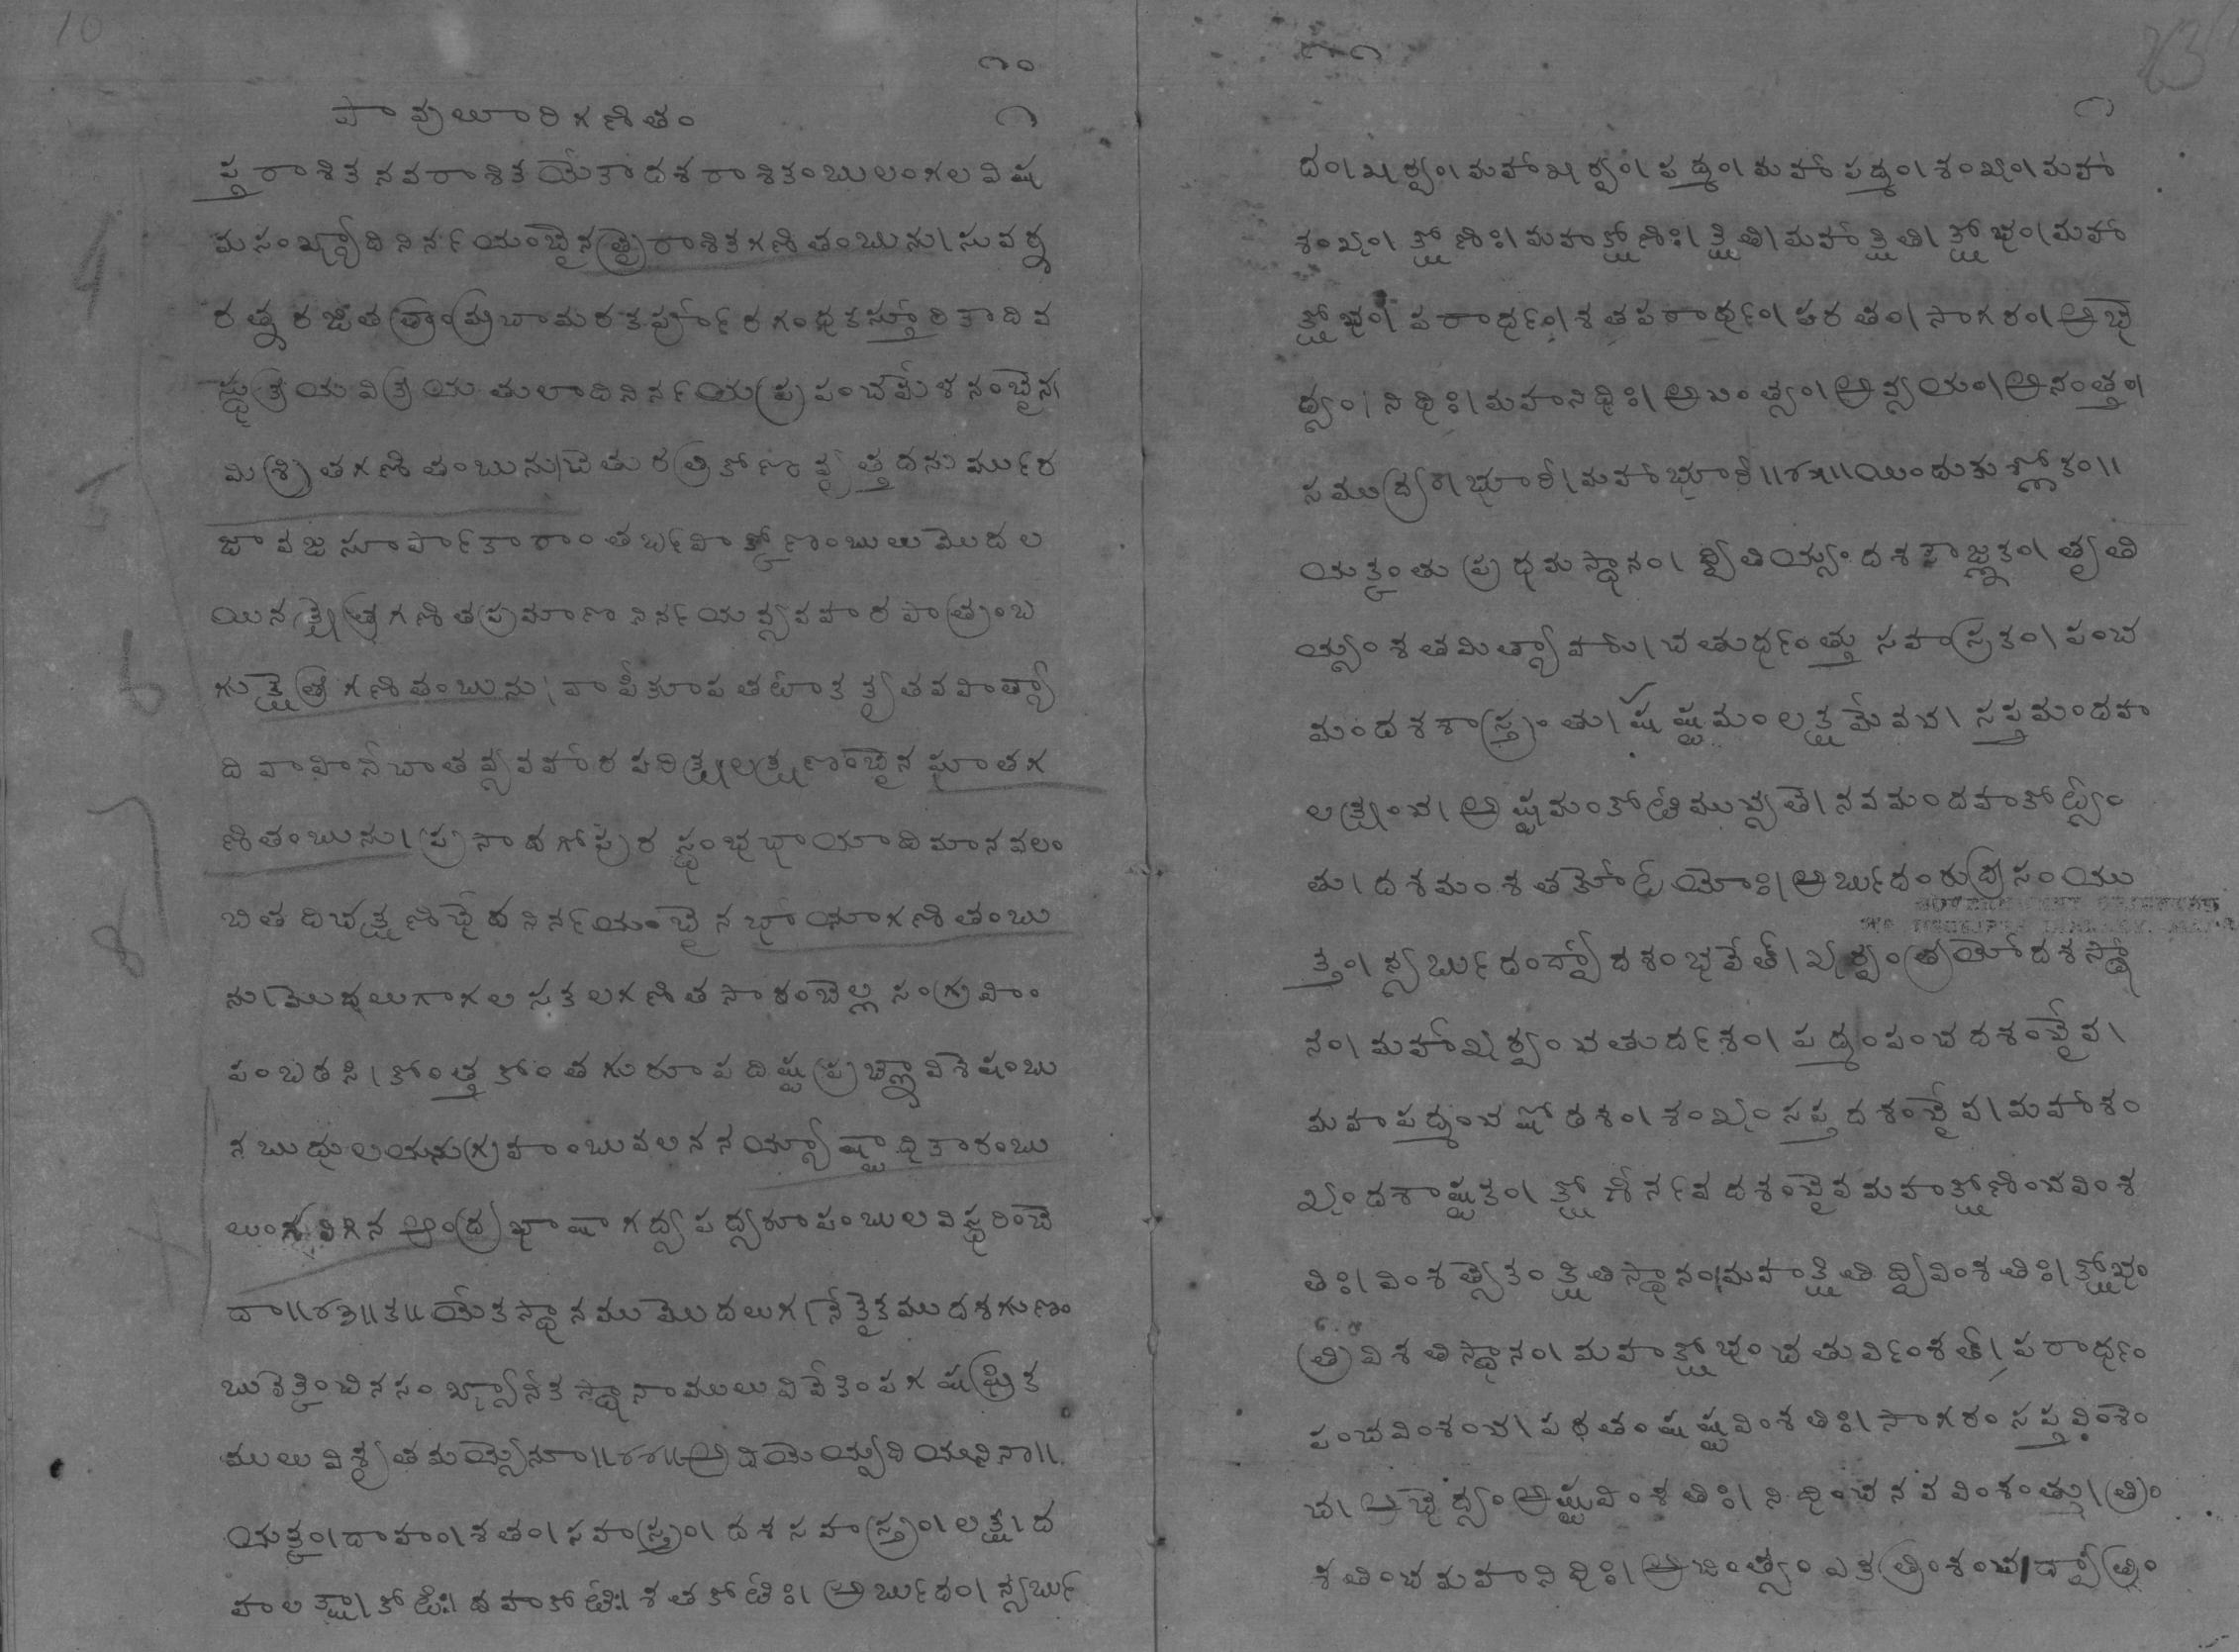 10
౧౦
పావులూరిగణితం ౧
ప్తరాశికనవరాశికయేకాదశరాశికంబులంగలవిష
మసంఖ్యాదినిర్నయంబైనత్రైరాశికగణితంబును। సువర్న
రత్నరజితత్రాంమ్రచామరకర్పూరగంధకస్తూరికాదివ
స్తుక్రయవిక్రయతులాదినిర్నయప్రపంచమేళనంబైన।
మిశ్రితగణితంబును। చెతురత్రికోణవృత్తదనుర్ముర
జావజసూర్పాకారాంతర్బహిక్షోణంబులుమొదల
యినక్షేత్రగణితప్రమాణనిర్నయవ్యవహారపాత్రంబ
గుక్షెత్రగణితంబును। వాపీకూపతటాకకృతవహిత్యా
దివాహినీఖాతవ్యవహారపరిక్షలక్షణంబైనఘాతగ
ణితంబును। ప్రసాదగోపురస్థంభఛాయాదిమానవలం
బితదిచక్షణిఛేదనిర్నయంబైనఛాయాగణితంబు
ను। మొదలుగాగలసకలగణితసారంబెల్ల సంగ్రహిం
పంబరసి। కోంత్తకోంతగురూపదిష్టప్రజ్ఞావిశెషంబు
నబుధులయనుగ్రహంబువలననయ్యేష్టాధికారంబు
లుంగవిగినఆంధ్రభాషాగద్యపద్యరూపంబులవిస్తరించె
దా॥౪౩॥క॥యేకస్థానముమొదలుగ। నేకైకముదశగుణం
బులెక్కించినసంఖ్యానేకస్థానాములువివేకింపగషష్ఠ్రిక
ములువిశృతమయ్యెనూ॥౪౪॥అదియెయ్యదియనినా॥
యక్కం। దాహం। శతం। సహస్త్రం। దశసహస్త్రం। లక్ష। ద
హలక్షా। కోటి। దహాకోటిః। శతకోటిః। అర్బుదం। న్యర్బు
౧౧
౧
దం। ఖర్వం। మహాఖర్వం। పద్మం। మహాపద్మం। శంఖం। మహా
శంఖం। క్షోణిః। మహాక్షోణిః। క్షితి। మహాక్షితి। క్షోభం। మహా
క్షోభం। పరార్ధం। శతపరార్ధం। పరతం। సాగరం। అభే
ద్యం। నిధిః। మహానిధిః। అచింత్యం। అవ్యయం। అనంత్తం।
సముద్ర। భూరి। మహాభూరి॥౪౫॥యిందుకుశ్లోకం॥
యక్కంతుప్రధమస్థానం। ద్వితియ్యందశసాజ్ఞకం। తృతి
య్యంశతమిత్యాహు। చతుర్ధంత్తుసహస్రకం। పంచ
మందశశాస్త్రంతు। షష్టమంలక్షమేవచ। సప్తమందహ
లక్షంచ। అష్టమంకోటిముచ్యతె। నవమందహకోట్యం
తు। దశమంశతకోటియోః। అర్బుదంరుద్రసంయు
క్తం। న్యర్బుదంద్వాదశంభవేత్। ఖర్వంత్రయోదశస్థా
నం। మహాఖర్వంచతుర్దశం। పద్మంపంచదశంచైవ।
మహపద్మంచషోడశం। శంఖంసప్తదశంచైవ। మహాశం
ఖందశాష్టకం। క్షోణిర్నవదశంచైవమహాక్షోణించవింశ
తిః। వింశత్యేకంక్షితిస్థానం। మహాక్షితిద్వివింశతిః। క్షోభం
త్రివిశతిస్థానం। మహాక్షోభంచతుర్వింశత్। పరార్ధం
పంచవింశంచ। పరతంషష్టవింశతిః। సాగరంసప్తవింశెం
చ। అభేద్యంఅష్టవింశతిః। నిధించనవవింశంత్తు। త్రిం
శతించమహానిధిః। అచింత్యంఎకత్రింశంచ। ద్వాత్రిం